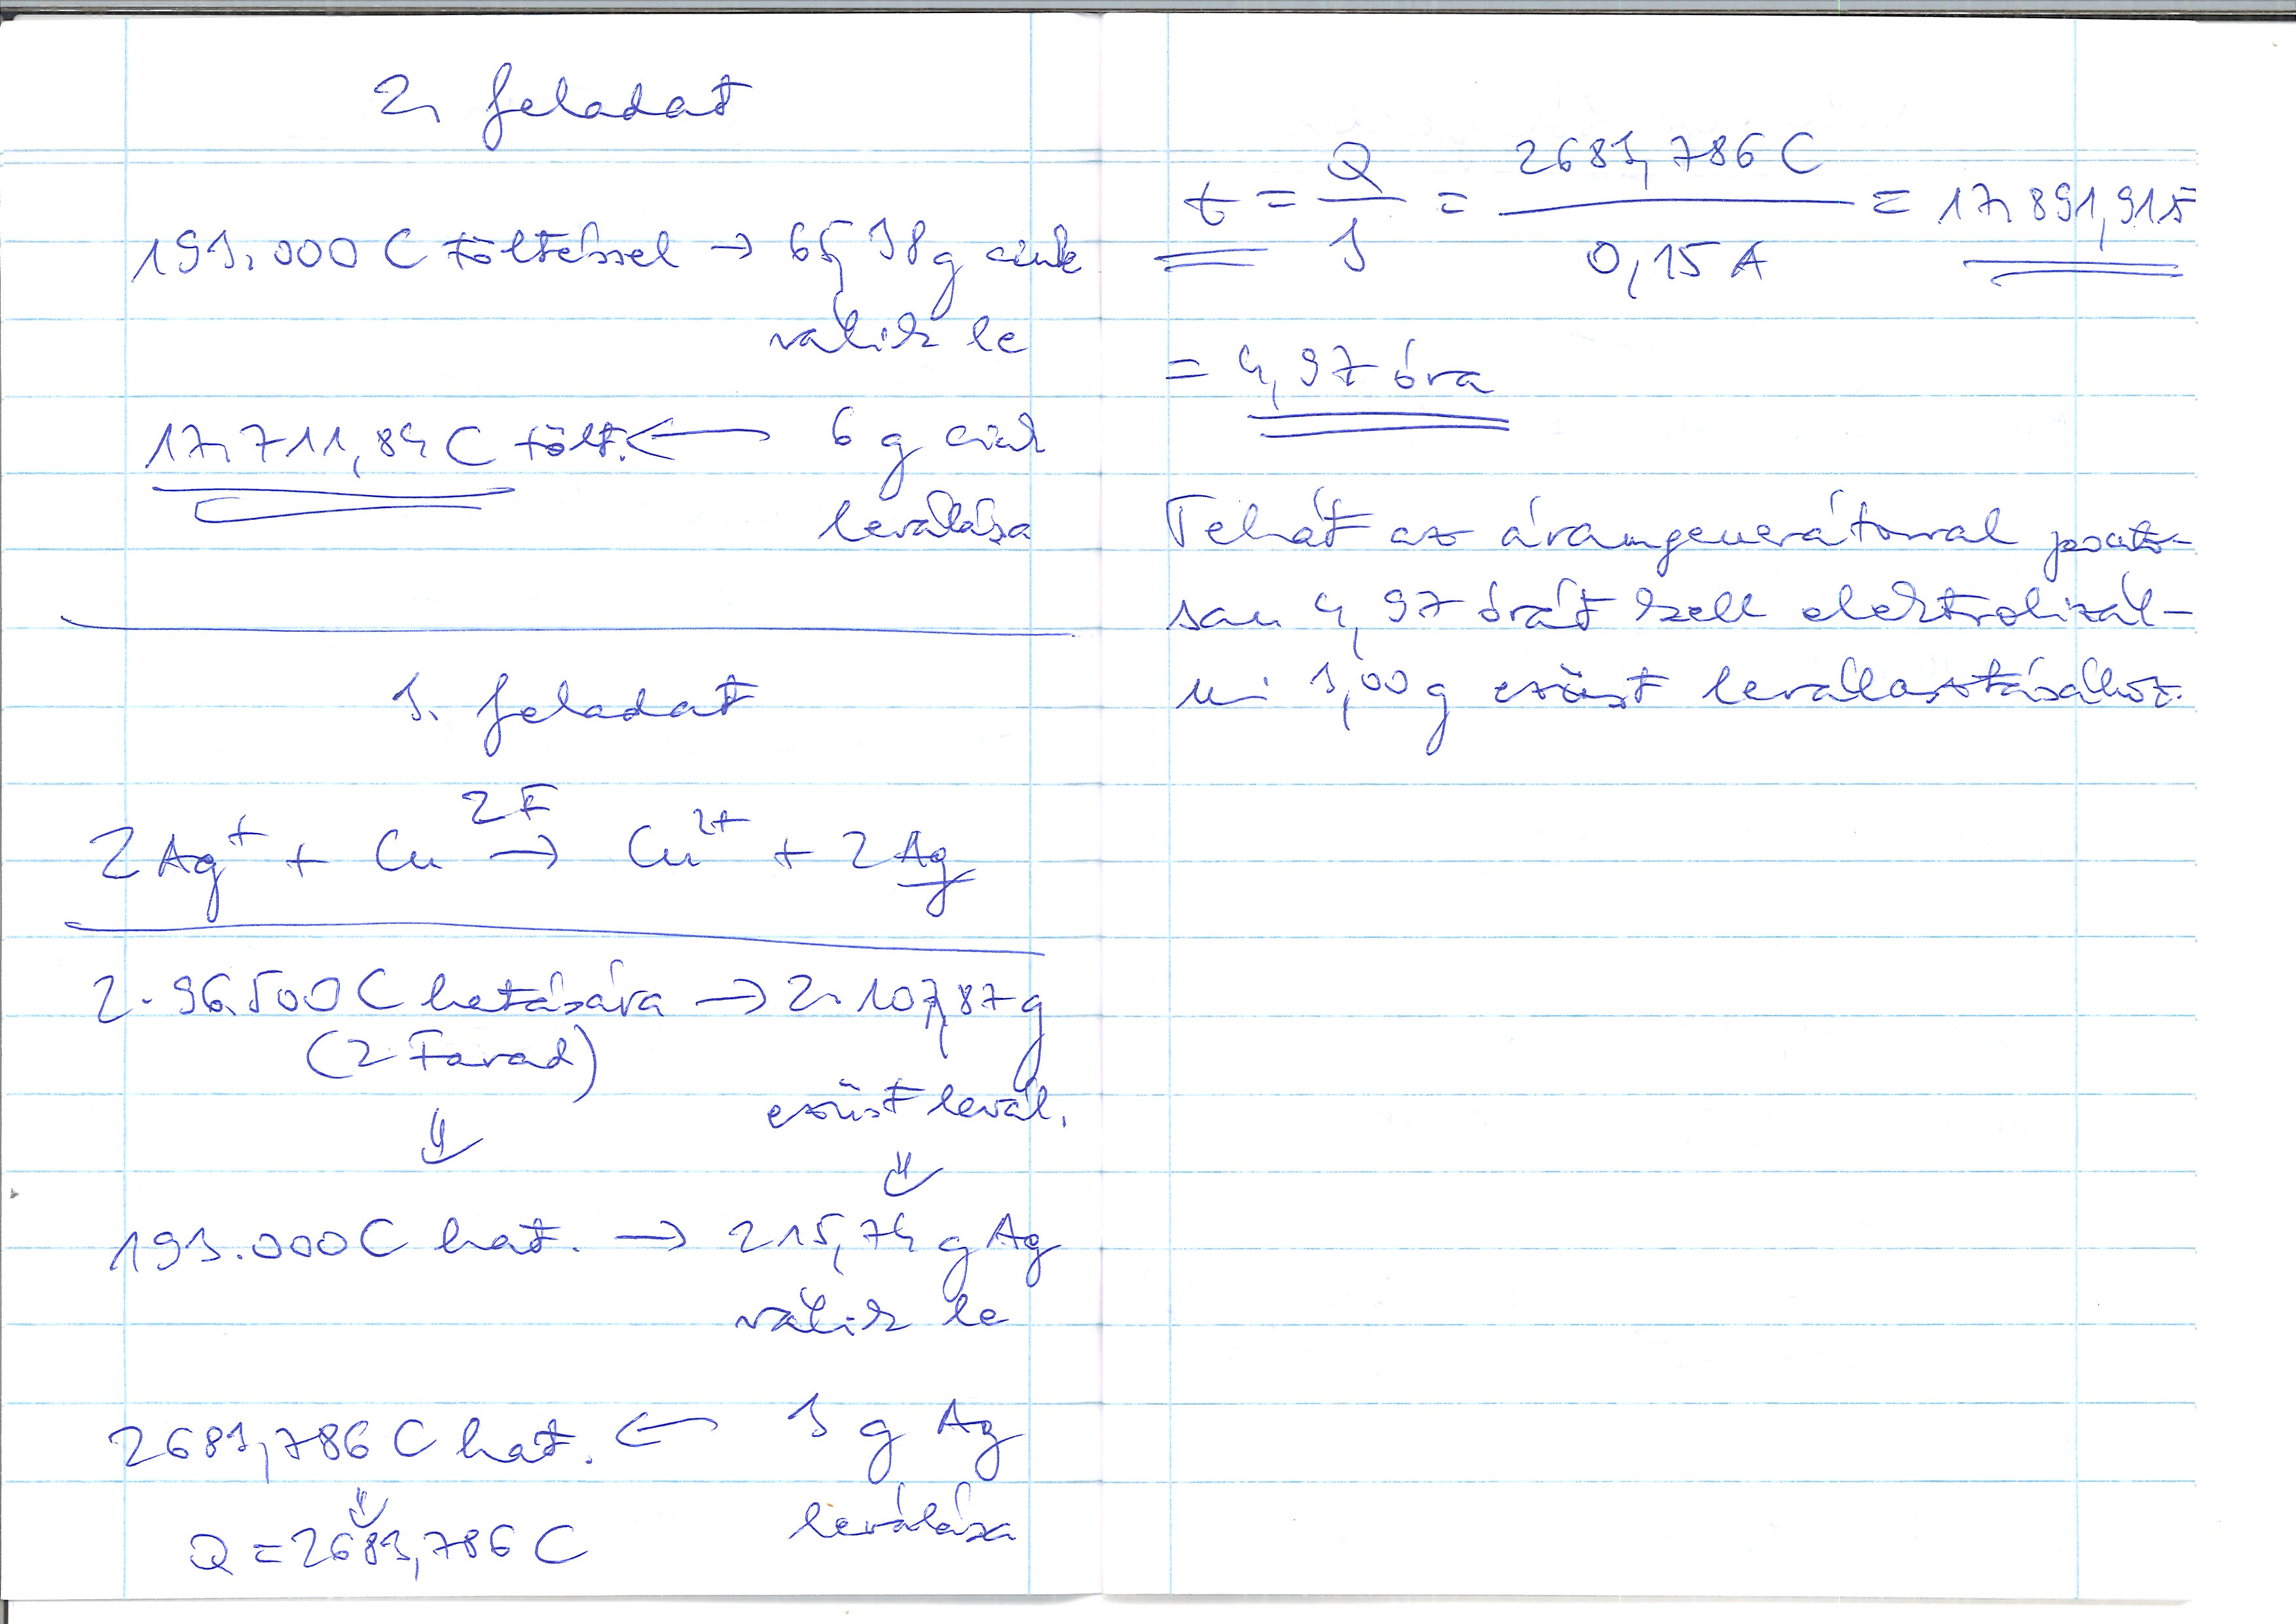 2. feladat
193.000 C töltéssel → 65,38 g cink
válik le
17.711,84 C tölt. ← 6 g cink
leválása
3. feladat
2F
2Ag⁺ + Cu → Cu²⁺ + 2Ag
2·96.500 C hatására → 2·107,87 g
(2 Farad)
ezüst levál.
⇓
⇓
193.000 C hat. → 215,74 g Ag
válik le
2683,786 C hat. ← 3 g Ag
leválása
⇓
Q = 2683,786 C
t = Q/I = 2683,786 C / 0,15 A = 17.891,91s
= 4,97 óra
Tehát az áramgenerátorral ponto-
san 4,97 órát kell elektrolizál-
ni 3,00 g ezüst leválasztásához.